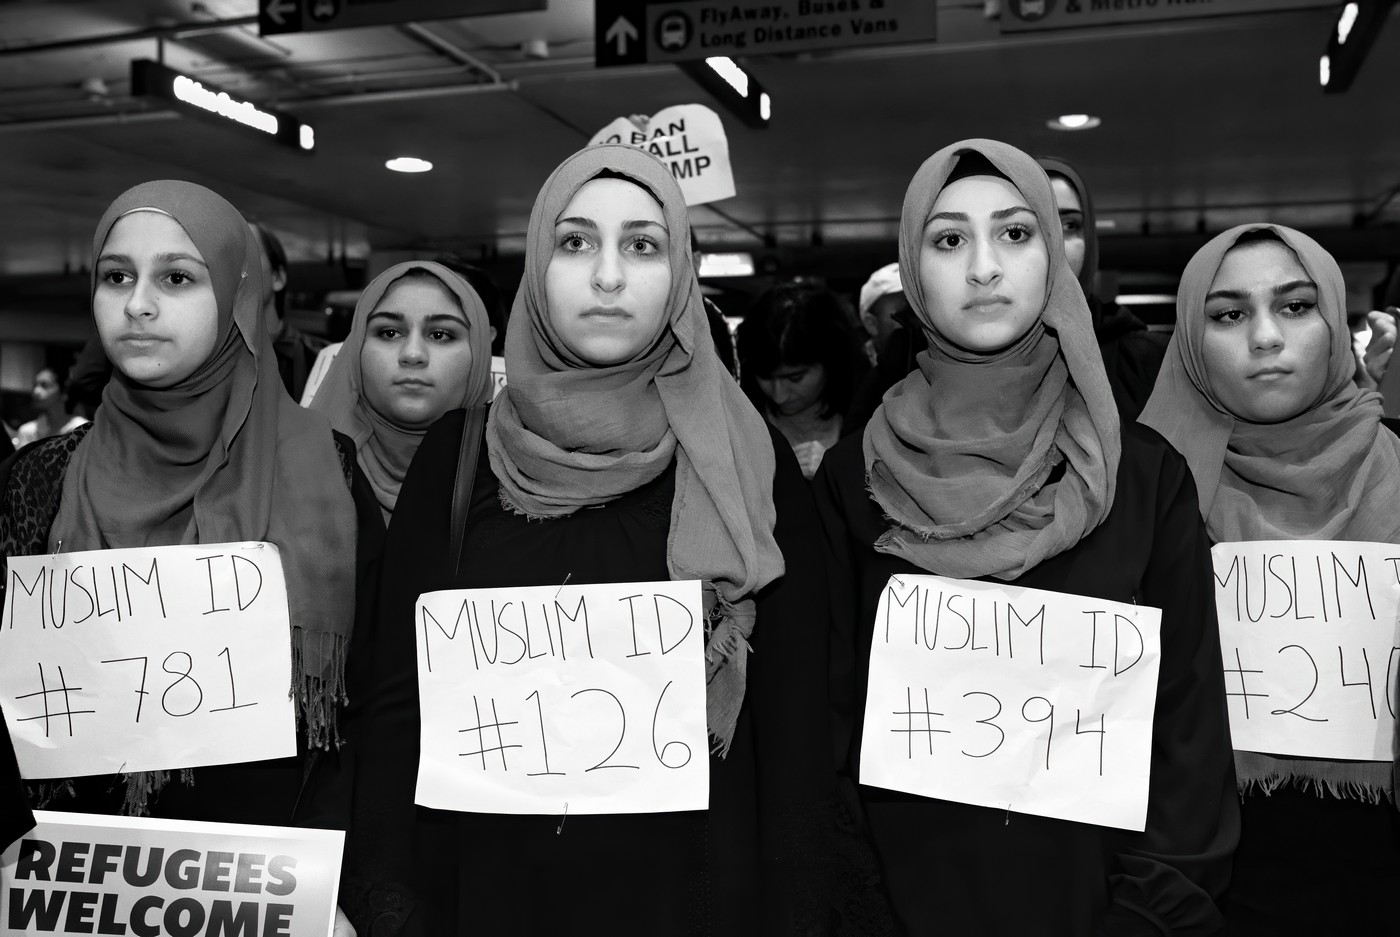 FlyAway, Buses &
Long Distance Vans
& Metro
BAN
MUSLIM ID
#781
MUSLIM ID
#126
MUSLIM ID
#394
MUSLIM
#240
REFUGEES
WELCOME